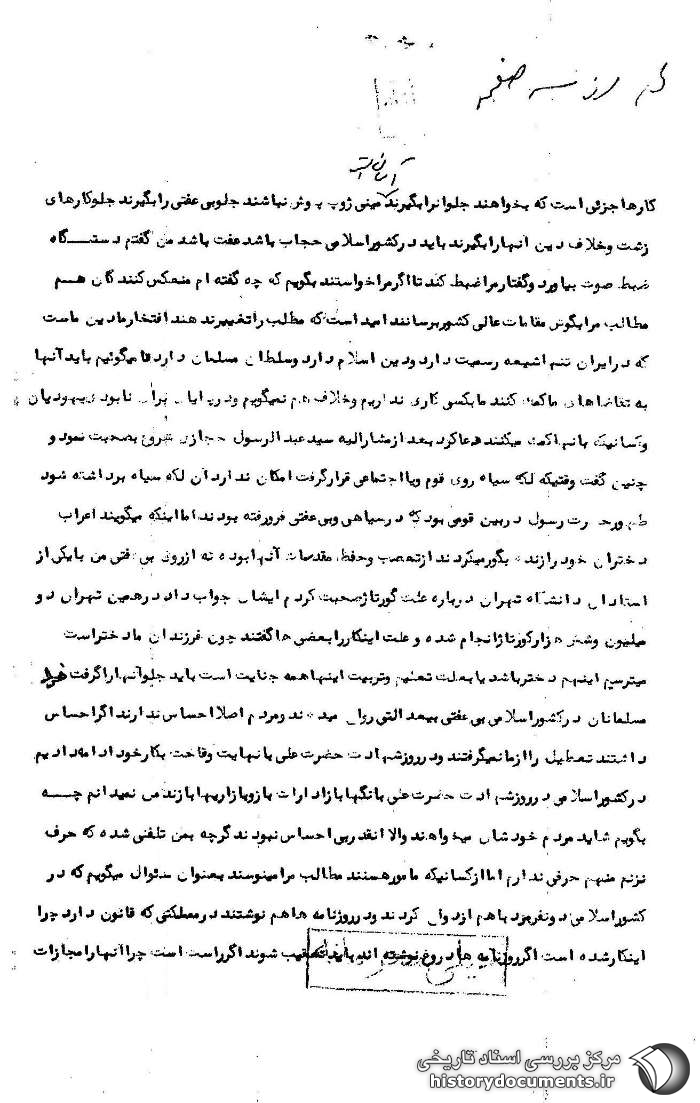 کارها جزئی است که بخواهند جلو انرا بگیرند مینی ژوپ پوش نباشند جلو بی عفتی را بگیرند جلو کارهای
زشت و خلاف دین انها را بگیرند باید در کشور اسلامی حجاب باشد عفت باشد من گفتم دستگاه
ضبط صوت بیاورد و گفتار مرا ضبط کند تا اگر مرا خواستند بگویم که چه گفته ام منعکس کنندگان هم
مطالب مرا بگوش مقامات عالی کشور برسانند امید است که مطلب را تغییر ندهند افتخار ما دین ماست
که در ایران تنها شیعه رسمیت دارد و دین اسلام دارد و سلطان مسلمان دارد ما میگوئیم باید آنها
به تقاضاهای ما کمک کنند ما بکسی کاری نداریم و خلاف هم نمیگویم و در پایان برای نابودی یهودیان
و کسانیکه بانها کمک میکنند دعا کرد بعد از مشارالیه سید عبدالرسول حجازی شروع بصحبت نمود و
چنین گفت وقتیکه لکه سیاه روی قوم و یا اجتماعی قرار گرفت امکان ندارد آن لکه سیاه برداشته شود
ظهور حضرت رسول در بین قومی بود که در سیاهی و بی عفتی فرو رفته بودند اما اینکه میگویند اعراب
دختران خود را زنده بگور میکردند از تعصب و حفظ مقدسات آنها بوده نه از روی بی عفتی من با یکی از
استادان دانشگاه تهران درباره علت کورتاژ صحبت کردم ایشان جواب داد در همین تهران دو
میلیون و شش هزار کورتاژ انجام شده و علت اینکار را بعضی ها گفتند چون فرزندان ما دختر است
میترسیم اینهم دختر باشد یا بعلت تعلیم و تربیت اینها همه جنایت است باید جلو آنها را گرفت
مسلمانان در کشور اسلامی بی عفتی بیعدالتی رواج میدهند و مردم اصلا احساس ندارند اگر احساس
داشتند تعطیل را از ما نمیگرفتند و در روز شهادت حضرت علی با نهایت وقاحت بکار خود ادامه دادیم
در کشور اسلامی در روز شهادت حضرت علی بانکها باز ادارات باز و بازاریها بازند من نمیدانم چه
بگویم شاید مردم خودشان میخواهند والا انقدر بی احساس نبودند گرچه بمن تلفنی شده که حرف
نزنم منهم حرفی ندارم اما از کسانیکه مامور هستند مطالب مرا مینویسند بعنوان سئوال میگویم که در
کشور اسلامی دو نفر مرد با هم ازدواج کردند و در روزنامه ها هم نوشتند در مملکتی که قانون دارد چرا
اینکار شده است اگر روزنامه ها دروغ نوشته اند باید تعقیب شوند اگر راست است چرا آنها را مجازات
مرکز بررسی اسناد تاریخی
historydocuments.ir